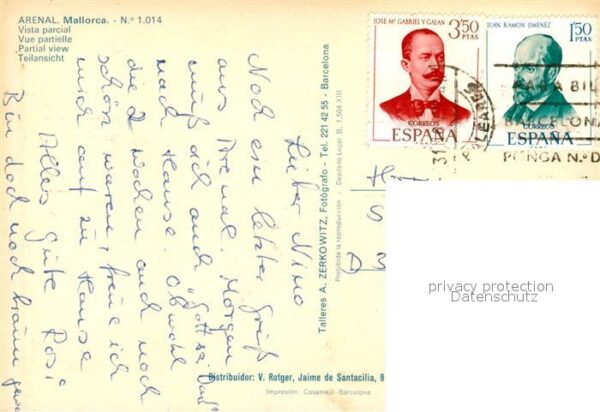 ARENAL. Mallorca. - N.º 1.014
Vista parcial
Vue partielle
Partial view
Teilansicht
Lieber Nino
Noch ein letzter Gruß
aus Arenal. Morgen
muß ich auch "Gott sei Dank"
nach Hause. Obwohl
die 2 Wochen auch noch
schön waren, freue ich
mich auf zu Hause
Alles Gute Rosi
Bin doch noch braun
Talleres A. ZERKOWITZ, Fotógrafo - Tel. 221 42 55 - Barcelona
Prohibida la reproducción - Depósito Legal: B. 1.564 XIII
Distribuidor: V. Rotger, Jaime de Santacilia, 8
Impresión: Casamajó-Barcelona
JOSE Mª GABRIEL Y GALAN
3,50
PTAS
CORREOS
ESPAÑA
JUAN RAMON JIMENEZ
1,50
PTAS
CORREOS
ESPAÑA
BARCELONA
PONGA N.º D
S
D
privacy protection
Datenschutz